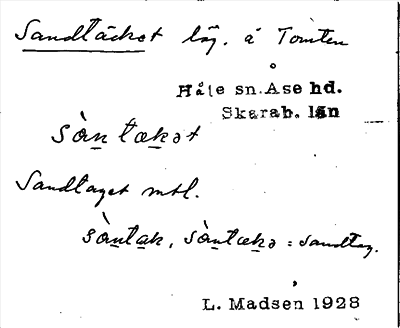 Sandtäcket läg. å Tomten
Håle sn. Åse hd.
Skarab. län
sàn̲tæk̲ət
Sandtaget mtl.
sàn̲ta̲k̲, sàn̲tæk̲ə = sandtag.
L. Madsen 1928